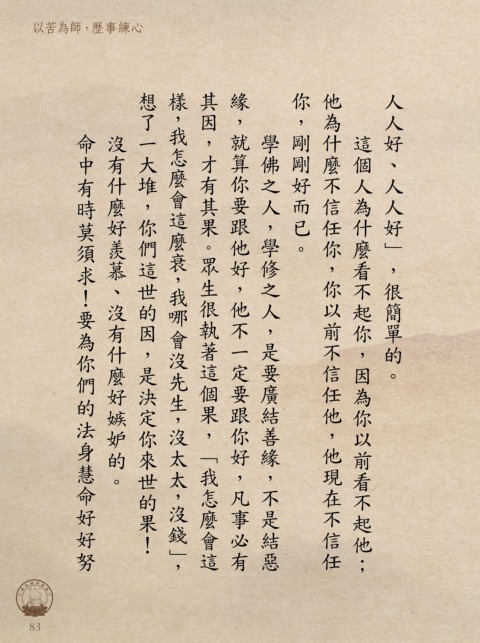 以苦為師，歷事練心
人人好、人人好」，很簡單的。
這個人為什麼看不起你，因為你以前看不起他；
他為什麼不信任你，你以前不信任他，他現在不信任
你，剛剛好而已。
學佛之人，學修之人，是要廣結善緣，不是結惡
緣，就算你要跟他好，他不一定要跟你好，凡事必有
其因，才有其果。眾生很執著這個果，「我怎麼會這
樣，我怎麼會這麼衰，我哪會沒先生，沒太太，沒錢」，
想了一大堆，你們這世的因，是決定你來世的果！
沒有什麼好羨慕、沒有什麼好嫉妒的。
命中有時莫須求！要為你們的法身慧命好好努
83